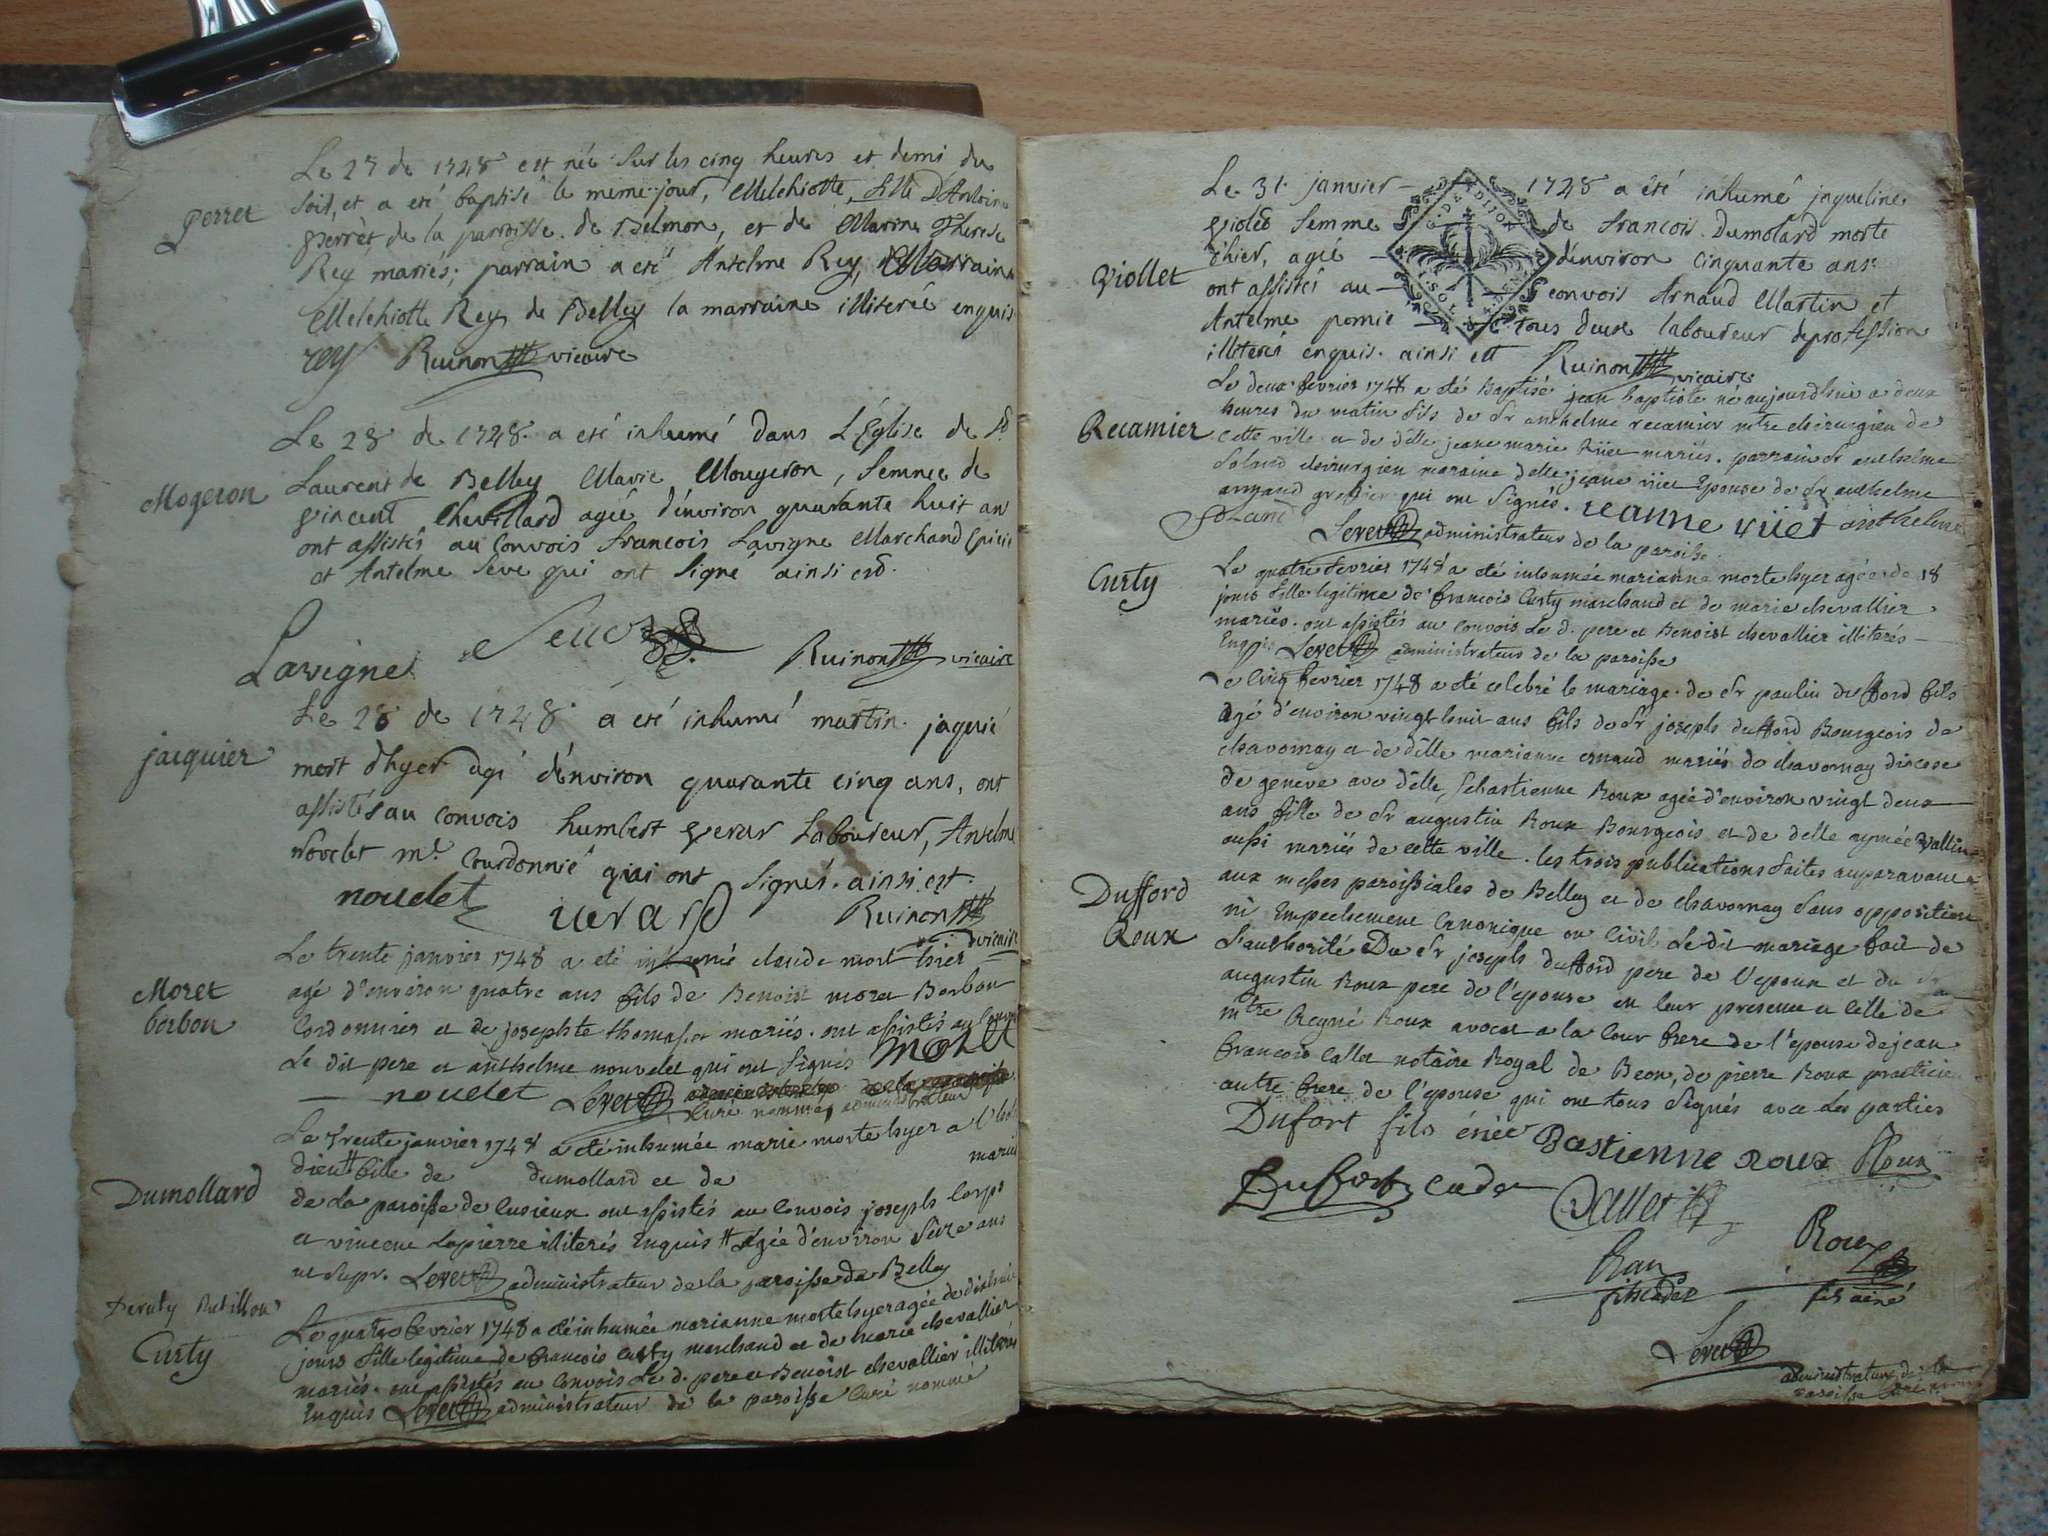 Le 27 de 1748 est née sur les cinq heures et demi du
soir, et a eté baptisé le meme jour, Melchiotte, fille D'Antoine
perret
perrèt de la parroisse de Belmon, et de Marine Therese
Rey mariés; parrain a eté Antelme Rey, Marraine
Melchiotte Rey de Belley la marraine illiterée enquis
rey Ruinon vicaire
Le 28 de 1748 a eté inhumé dans L'Église de St
Mogeron
Laurent de Belley Marie Mougeron, femme de
vincent Chevillard agée d'environ quarante huit an
ont assistés au convois francois Lavigne Marchand Epicié
et Antelme Seve qui ont signé ainsi est.
Lavigne Ruinon vicaire
Le 28 de 1748 a eté inhumé martin jaquié
jacquier
mort d'hyer agé d'environ quarante cinq ans, ont
assistés au convois humbert verar Laboureur, Antelme
novelet me Courdonnié qui ont signés. ainsi est.
nouelet verard Ruinon vicaire
Le trente janvier 1748 a eté inhumé claude mort hier
Moret
borbon
agé d'environ quatre ans fils de Benoist moret Borbon
Cordonnier et de josephte thomasset mariés. ont assistés au convoi
Le dit pere et anthelme nouvelet qui ont signés Moret
nouelet
Curé nommé administrateur
Le trente janvier 1748 a été inhumée marie morte hyer a l'hotel
dieu fille de dumollard et de mariés
Dumollard
de la paroisse de Cusieux ont assistés au convois joseph Corps
et vincent Lapierre illiterés Enquis agée d'environ seize ans
ut supr. administrateur de la paroisse de Belley
Curty
Le quatre fevrier 1748 a été inhumée marianne morte hyer agée de dixhuit
jours fille legitime de francois Curty marchand et de marie chevallier
mariés. ont assistés au convois le d. pere et Benoist chevallier illiterés
Enquis administrateur de la paroisse Curé nommé
Le 31 janvier 1748 a été inhumé jaqueline
violet femme de francois Dumolard morte
Viollet
d'hier, agée d'environ cinquante ans
ont assistés au convois Arnaud Martin et
Antelme pernie tous deux laboureur de profession
illiterés enquis. ainsi est Ruinon vicaire
Le deux fevrier 1748 a été Baptisé jean baptiste né aujourd'huie a deux
heures du matin fils de sr anthelme recamier mtre chirurgien de
Recamier
cette ville et de delle jeane marie mariés. parrain sr anthelme
Soland chirurgien maraine delle jeane Epouse de sr anthelme
greffier qui ont signés. ieanne vüet anthelme
administrateur de la paroisse
Curty
Le quatre fevrier 1748 a été inhumée marianne morte hyer agée de 18
jours fille legitime de francois Curty marchand et de marie chevallier
mariés. ont assistés au convois le d. pere et Benoist chevallier illiterés
Enquis administrateur de la paroisse
Le Cinq fevrier 1748 a été celebré le mariage de sr paulin dufford fils
agé d'environ vingt huit ans fils de sr joseph dufford Bourgeois de
chavornay et de delle marianne mariés de chavornay diocese
de geneve avec delle, sebastienne Roux agée d'environ vingt deux
ans fille de sr augustin Roux Bourgeois et de delle aymée vallin
aussi mariés de cette ville. les trois publications faites auparavant
Dufford
Roux
aux messes paroissiales de Belley et de chavornay sans opposition
ni Empechement Canonique ou Civil. Le dit mariage fait de
l'authorité Du sr joseph dufford pere de l'epoux et du sr
augustin Roux pere de l'epouse en leur presence et celle de
mtre Roux avocat a la Cour frere de l'epouse de jean
francois Callet notaire Royal de Beon, de pierre Roux praticien
autre frere de l'epouse qui ont tous signés avec Les parties
Dufort fils Bastienne roux Roux
Dufort Callet
Roux
fils cadet fils ainé
administrateur de la
paroisse